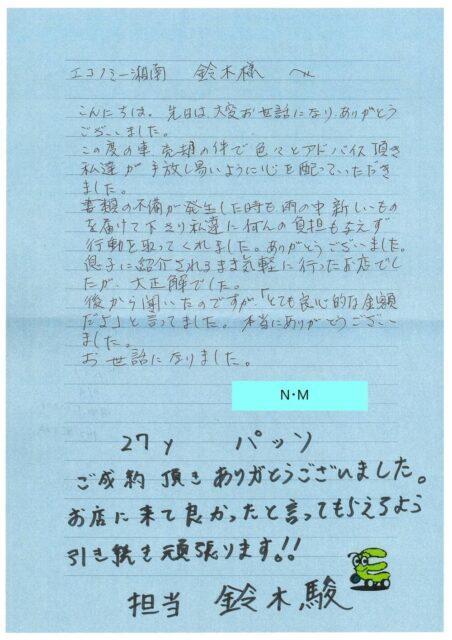 エコノミー湘南 鈴木様 へ
こんにちは。先日は大変お世話になり、ありがとう
ございました。
この度の車売却の件で色々とアドバイス頂き
私達が手放し易いように心を配っていただき
ました。
書類の不備が発生した時も、雨の中新しいもの
を届けて下さり私達に何んの負担も与えず
行動を取ってくれました。ありがとうございました。
息子に紹介されるまま気軽に行ったお店でし
たが、大正解でした。
後から聞いたのですが「とても良心的な金額
だよ」と言ってました。本当にありがとうござい
ました。
お世話になりました。
N・M
27y パッソ
ご成約頂きありがとうございました。
お店に来て良かったと言ってもらえるよう
引き続き頑張ります!!
担当 鈴木駿